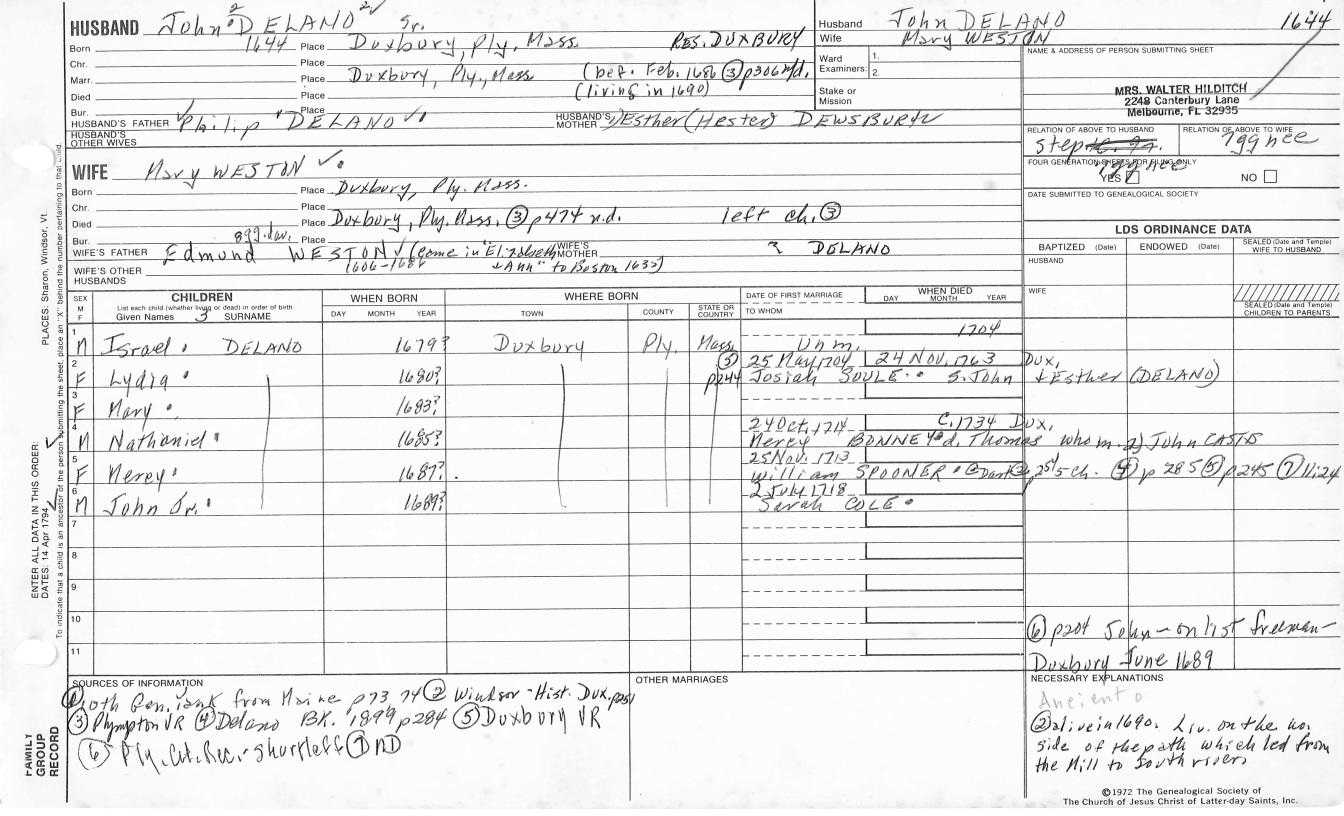 HUSBAND John² DELANO Sr.
Born 1644 Place Duxbury, Ply, Mass. RES. DUXBURY
Chr. Place
Marr. Place Duxbury, Ply., Mass (bef. Feb. 1686 ③ p306 n/d.
Died Place (living in 1690)
Bur. Place
HUSBAND'S FATHER Philip DELANO HUSBAND'S MOTHER Esther (Hester) DEWSBURY
HUSBAND'S OTHER WIVES
WIFE Mary WESTON
Born Place Duxbury, Ply. Mass.
Chr. Place
Died Place Duxbury, Ply, Mass. ③ p474 n.d. left ch. ③
Bur. Place
WIFE'S FATHER Edmund WESTON (came in "Elizabeth WIFE'S MOTHER ? DELANO
1606-1686 & Ann" to Boston 1635)
WIFE'S OTHER HUSBANDS
Husband John DELANO 1644
Wife Mary WESTON
Ward 1.
Examiners: 2.
Stake or Mission
NAME & ADDRESS OF PERSON SUBMITTING SHEET
MRS. WALTER HILDITCH
2248 Canterbury Lane
Melbourne, FL 32935
RELATION OF ABOVE TO HUSBAND RELATION OF ABOVE TO WIFE
step 7ggnce
FOUR GENERATION SHEETS FOR FILING ONLY
YES NO
DATE SUBMITTED TO GENEALOGICAL SOCIETY
LDS ORDINANCE DATA
BAPTIZED (Date) ENDOWED (Date) SEALED (Date and Temple) WIFE TO HUSBAND
HUSBAND
WIFE
SEALED (Date and Temple) CHILDREN TO PARENTS
SEX M F CHILDREN WHEN BORN WHERE BORN DATE OF FIRST MARRIAGE WHEN DIED
List each child (whether living or dead) in order of birth
Given Names 3 SURNAME DAY MONTH YEAR TOWN COUNTY STATE OR COUNTRY TO WHOM DAY MONTH YEAR
1 1704
M Israel DELANO 1679? Duxbury Ply. Mass Unm.
2 ⑤ 25 May 1704 24 NOV. 1763 Dux,
F Lydia 1680? p244 Josiah SOULE s. John & Esther (DELANO)
3
F Mary 1683?
4 24 Oct, 1714 C. 1734 Dux,
M Nathaniel 1685? Mercy BONNEY d. Thomas who m. 2) John CASTIS
5 25 Nov. 1713
F Mercy 1687? William SPOONER 5 ch. ④ p 285 ⑤ p245 ⑦ 11:24
6 2 July 1718
M John Jr. 1689? Sarah COLE
7
8
9
10
11
⑥ p204 John - on list freeman -
Duxbury June 1689
SOURCES OF INFORMATION
① 10th Gen. Yank from Maine p73 74 ② Windsor - Hist. Dux. p251
③ Plympton VR ④ Delano BK. 1899 p284 ⑤ Duxbury VR
⑥ Ply. Col. Rec. - Shurtleff ⑦ ND
OTHER MARRIAGES
NECESSARY EXPLANATIONS
Ancient
② alive in 1690. Liv. on the no.
side of the path which led from
the Mill to South river.
©1972 The Genealogical Society of
The Church of Jesus Christ of Latter-day Saints, Inc.
PLACES: Sharon, Windsor, Vt.
ENTER ALL DATA IN THIS ORDER:
DATES: 14 Apr 1794
To indicate that a child is an ancestor of the person submitting the sheet, place an "X" behind the number pertaining to that child.
FAMILY GROUP RECORD